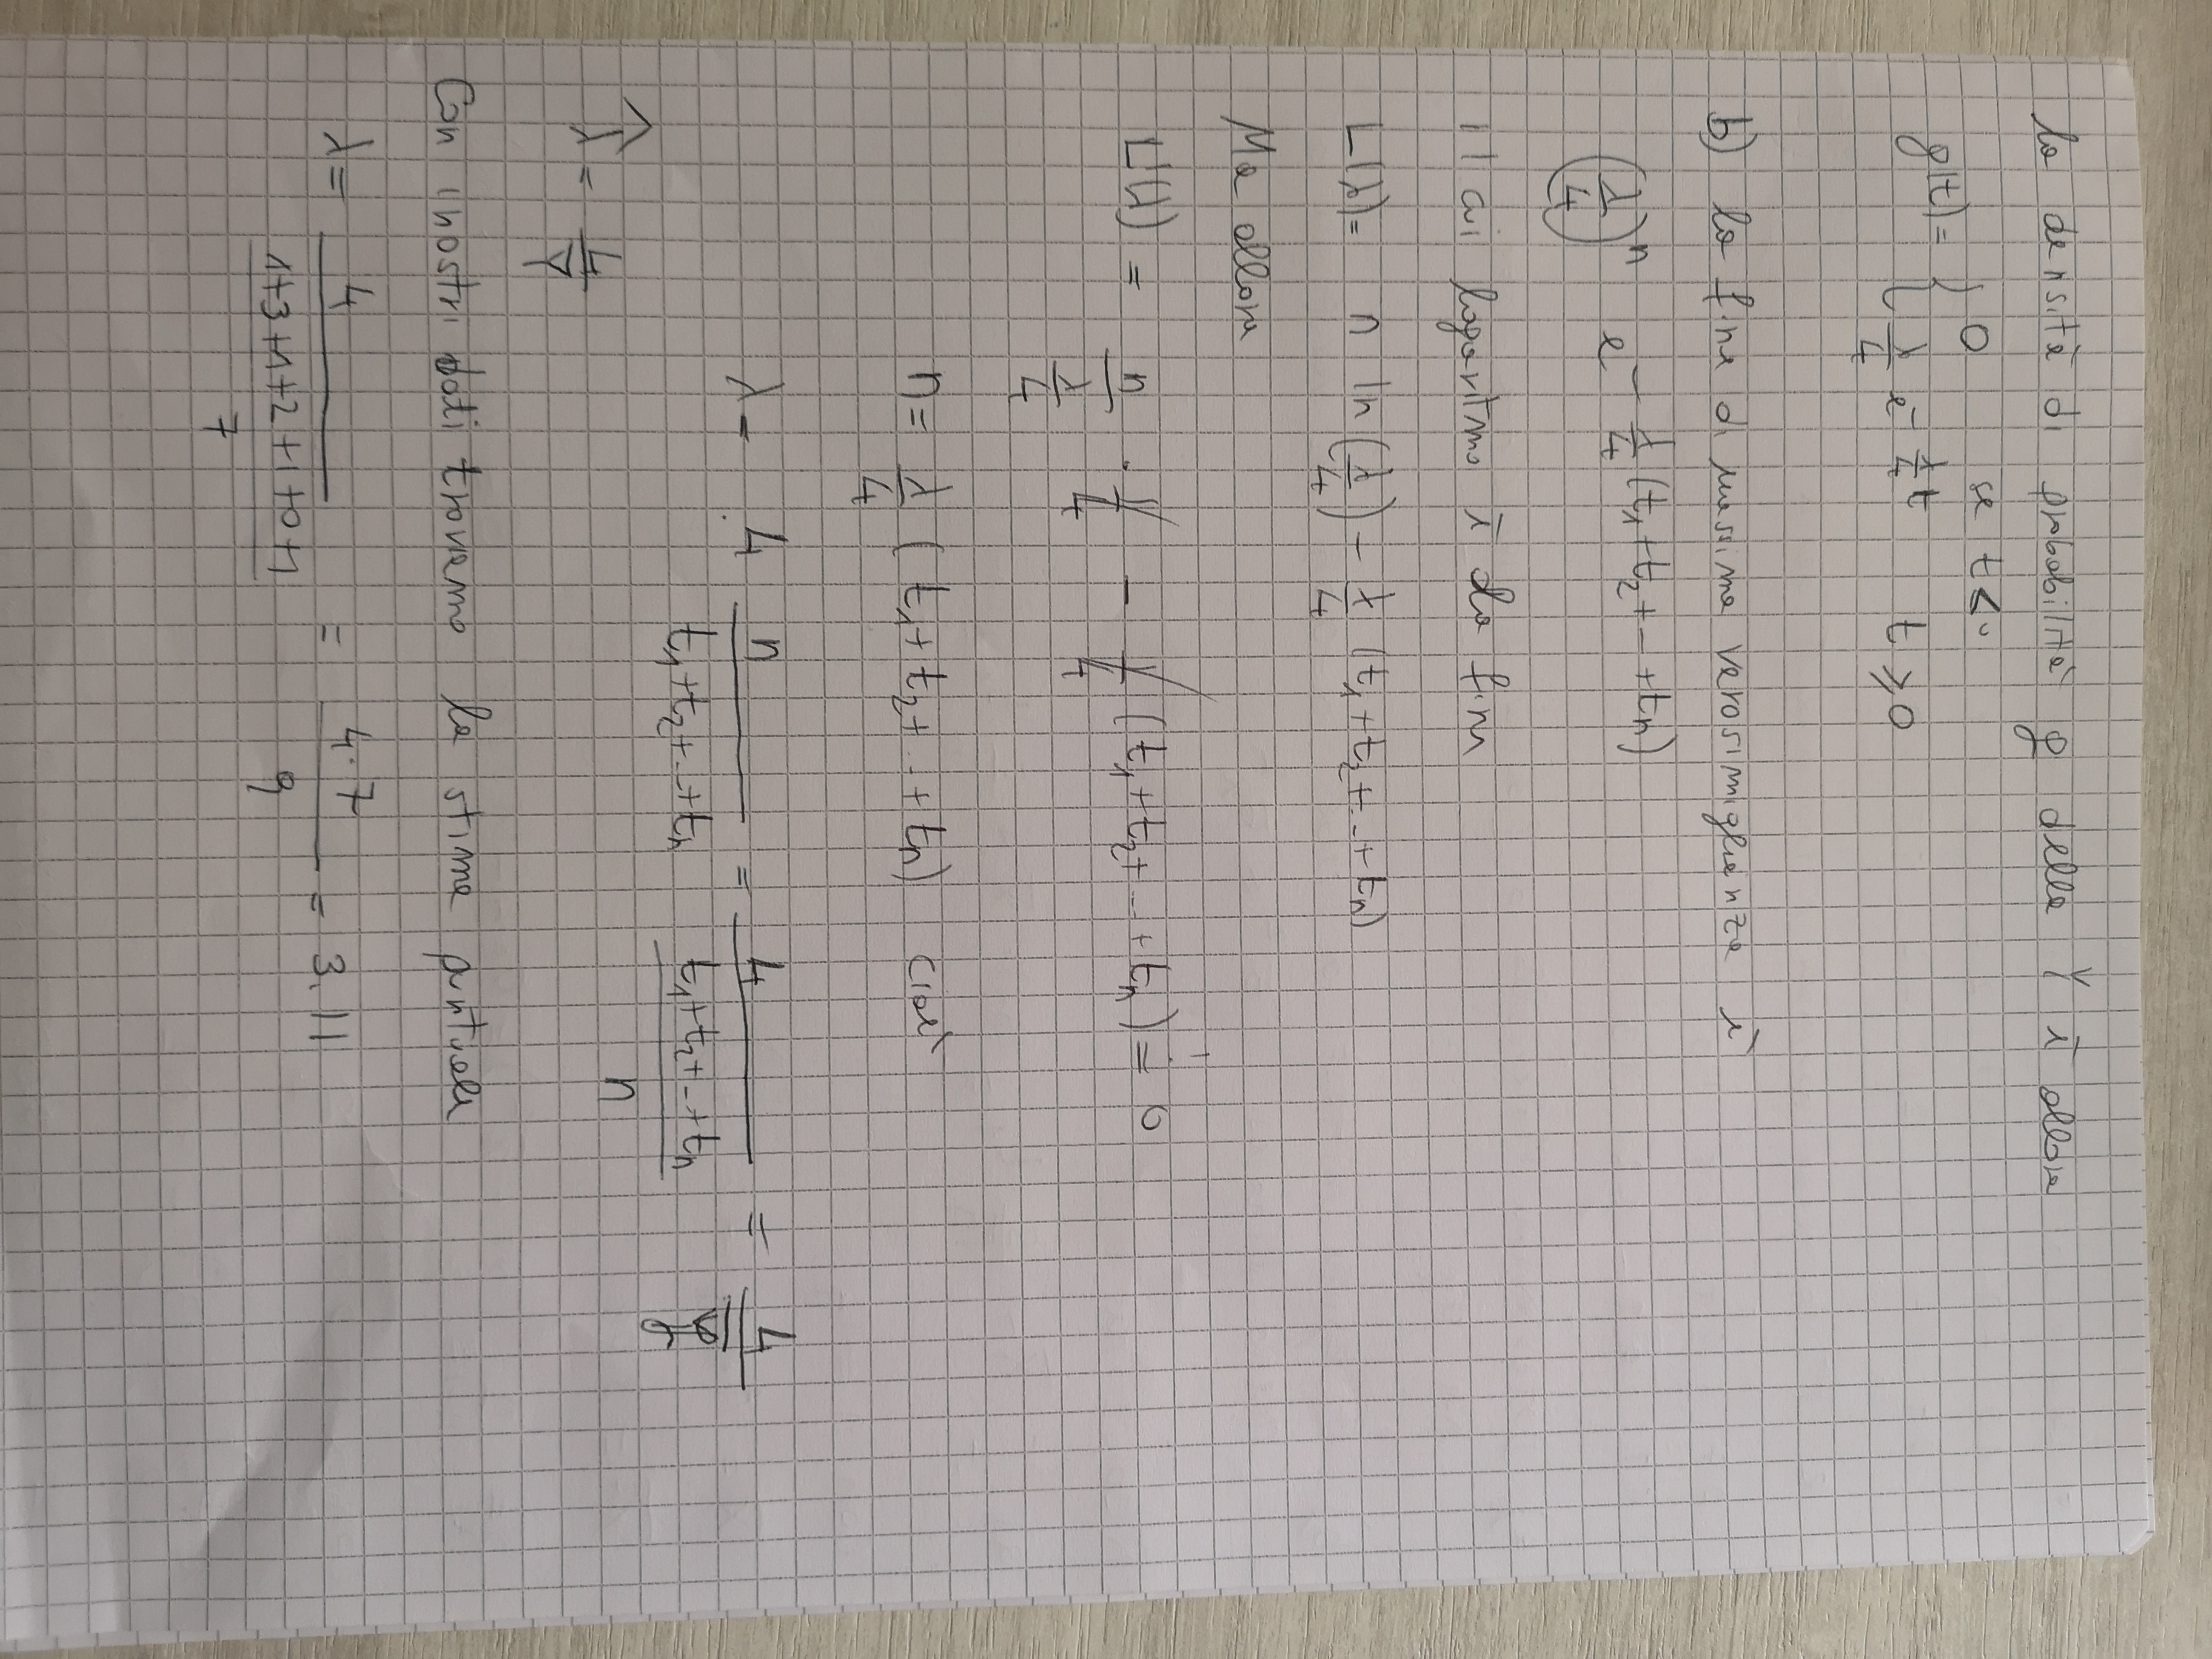 la densità di probabilità g della Y è allora
g(t) = { 0 se t ≤ 0
λ/4 e^(- λ/4 t) t ≥ 0
b) la fnz di massima verosimiglianza è
(λ/4)^n e^(- λ/4 (t₁+t₂+...+tₙ))
il cui logaritmo è la fnz
L(λ) = n ln(λ/4) - λ/4 (t₁+t₂+...+tₙ)
Ma allora
L'(λ) = n/(λ/4) · 1/4 - 1/4 (t₁+t₂+...+tₙ) = 0
n = λ/4 (t₁+t₂+...+tₙ) cioè
λ = 4 n/(t₁+t₂+...+tₙ) = 4/((t₁+t₂+...+tₙ)/n) = 4/ȳ
λ̂ = 4/Ȳ
Con i nostri dati troviamo la stima puntuale
λ = 4/((1+3+1+2+1+0+1)/7) = 4·7/9 = 3.11